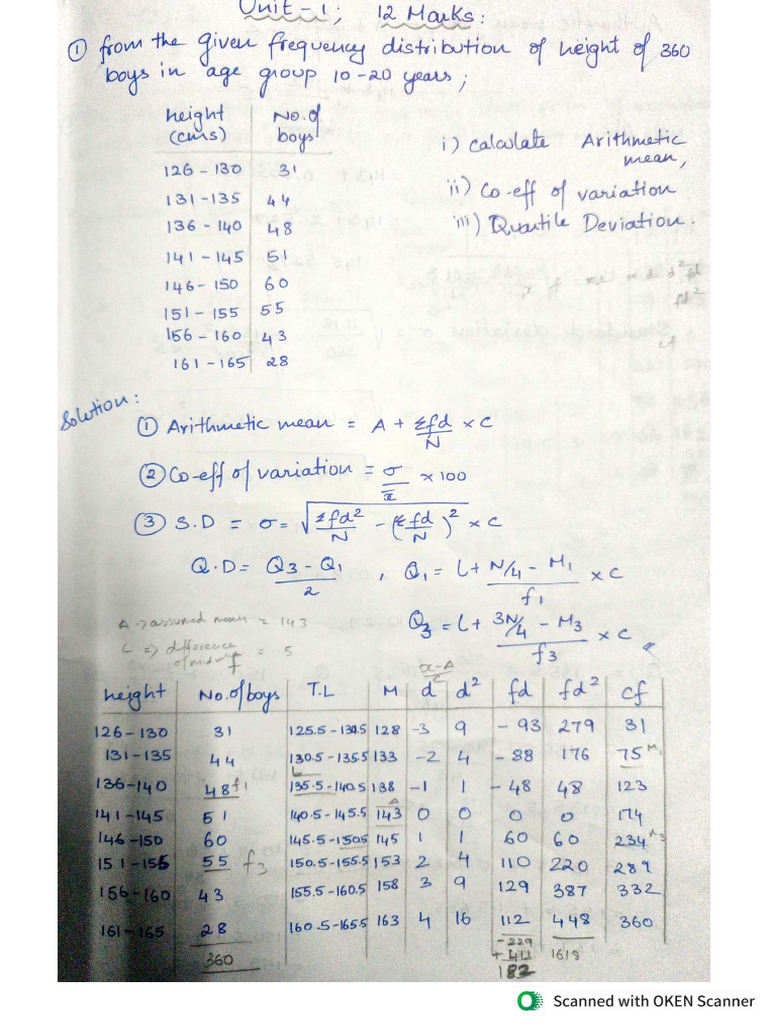 Unit - 1; 12 Marks:
① from the given frequency distribution of height of 360
boys in age group 10-20 years;
height (cms) | No. of boys
126 - 130 31
131 - 135 44
136 - 140 48
141 - 145 51
146 - 150 60
151 - 155 55
156 - 160 43
161 - 165 28
i) Calculate Arithmetic mean,
ii) Co-eff of variation
iii) Quartile Deviation.
Solution:
① Arithmetic mean = A + Σfd/N × C
② Co-eff of variation = σ/x̄ × 100
③ S.D = σ = √(Σfd²/N - (Σfd/N)²) × C
Q.D = Q3 - Q1 / 2 , Q1 = L + N/4 - M1 / f1 × C
A → assumed mean = 143
Q3 = L + 3N/4 - M3 / f3 × C
C => difference of midvalue = 5
x-A/C
height No. of boys f T.L M d d² fd fd² cf
126 - 130 31 125.5 - 130.5 128 -3 9 - 93 279 31
131 - 135 44 130.5 - 135.5 133 -2 4 - 88 176 75 M1
136 - 140 48 f1 L 135.5 - 140.5 138 -1 1 - 48 48 123
141 - 145 51 140.5 - 145.5 A 143 0 0 0 0 174
146 - 150 60 145.5 - 150.5 145 1 1 60 60 234 M3
151 - 155 55 f3 150.5 - 155.5 153 2 4 110 220 289
156 - 160 43 155.5 - 160.5 158 3 9 129 387 332
161 - 165 28 160.5 - 165.5 163 4 16 112 448 360
360 - 229 1618
+ 411
182
Scanned with OKEN Scanner